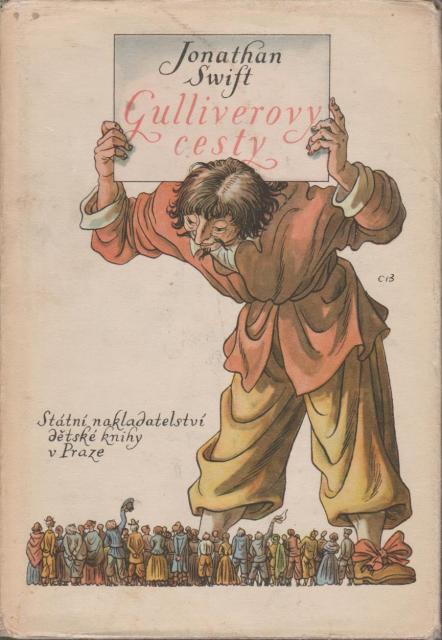 Jonathan
Swift
Gulliverovy
cesty
CB
Státní nakladatelství
dětské knihy
v Praze